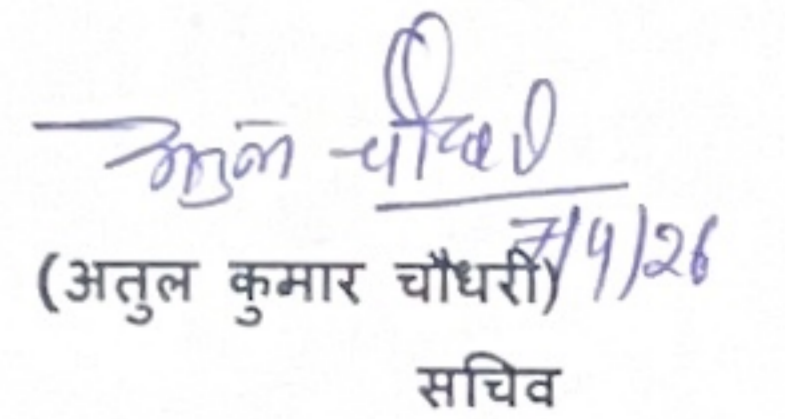 अतुल चौधरी
7/4/26
(अतुल कुमार चौधरी)
सचिव